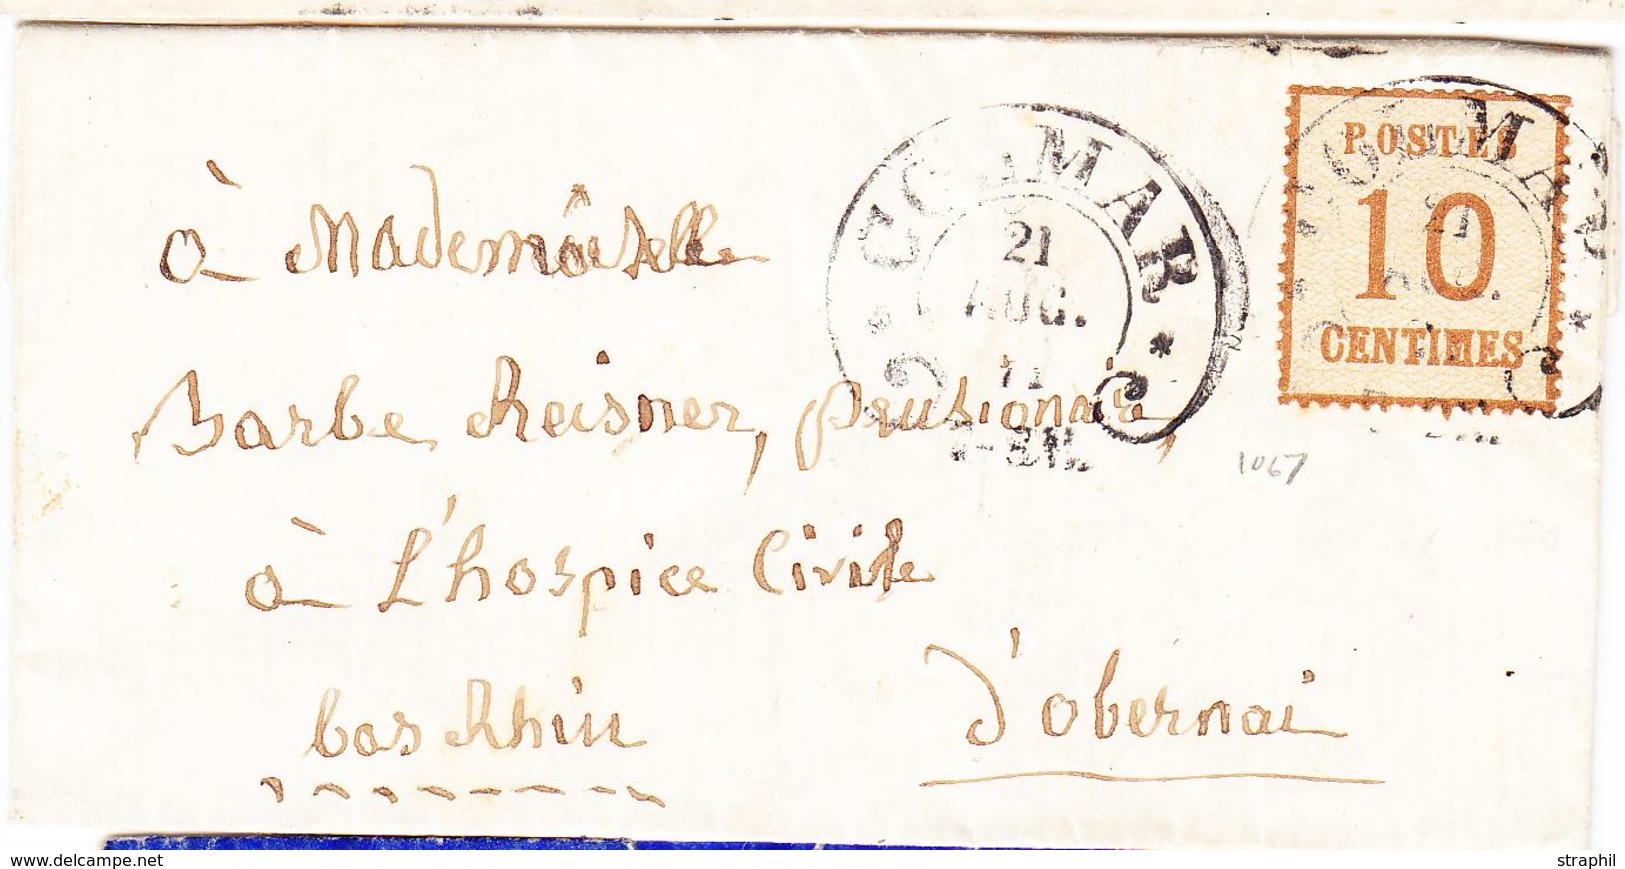 COLMAR
21
AUG.
71
POSTES
10
CENTIMES
COLMAR
21
AUG.
à Mademoiselle
Barbe Reisner, pensionaire,
1067
à L'hospice Civile
bas Rhin d'obernai
www.delcampe.net
straphil